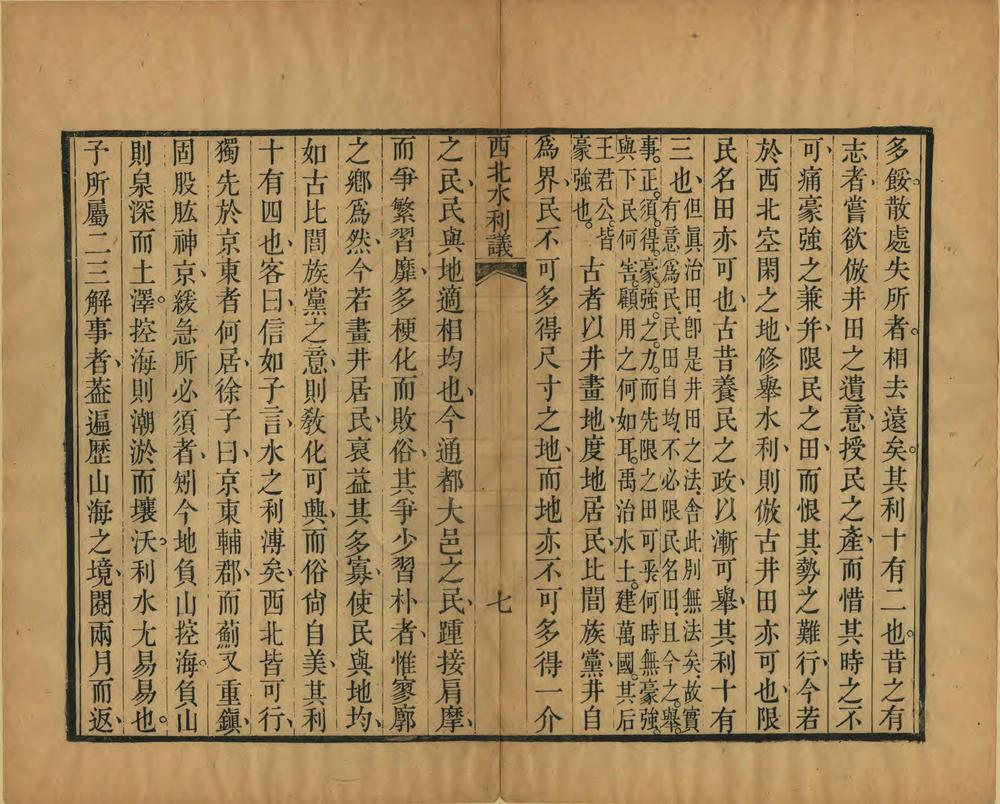 多餒散處失所者相去遠矣其利十有二也昔之有
志者嘗欲倣井田之遺意授民之產而惜其時之不
可痛豪強之兼并限民之田而恨其勢之難行今若
於西北空閑之地修舉水利則倣古井田亦可也限
民名田亦可也古昔養民之政以漸可舉其利十有
三也但眞治田卽是井田之法舍此別無法矣故實
有意爲民民田自均不必限民名田且今之舉
事正須得豪強之力而先限之田可乎何時無豪強
與下民何害顧用之何如耳禹治水土建萬國其后
王君公皆
豪強也
古者以井畫地度地居民比閭族黨井自
爲界民不可多得尺寸之地而地亦不可多得一介
西北水利議 七
之民民與地適相均也今通都大邑之民踵接肩摩
而爭繁習靡多梗化而敗俗其爭少習朴者惟寥廓
之鄉爲然今若畫井居民裒益其多寡使民與地均
如古比閭族黨之意則敎化可興而俗尙自美其利
十有四也客曰信如子言水之利溥矣西北皆可行
獨先於京東者何居徐子曰京東輔郡而薊又重鎭
固股肱神京緩急所必須者矧今地負山控海負山
則泉深而土澤控海則潮淤而壤沃利水尤易易也
子所屬二三解事者葢遍歷山海之境閱兩月而返